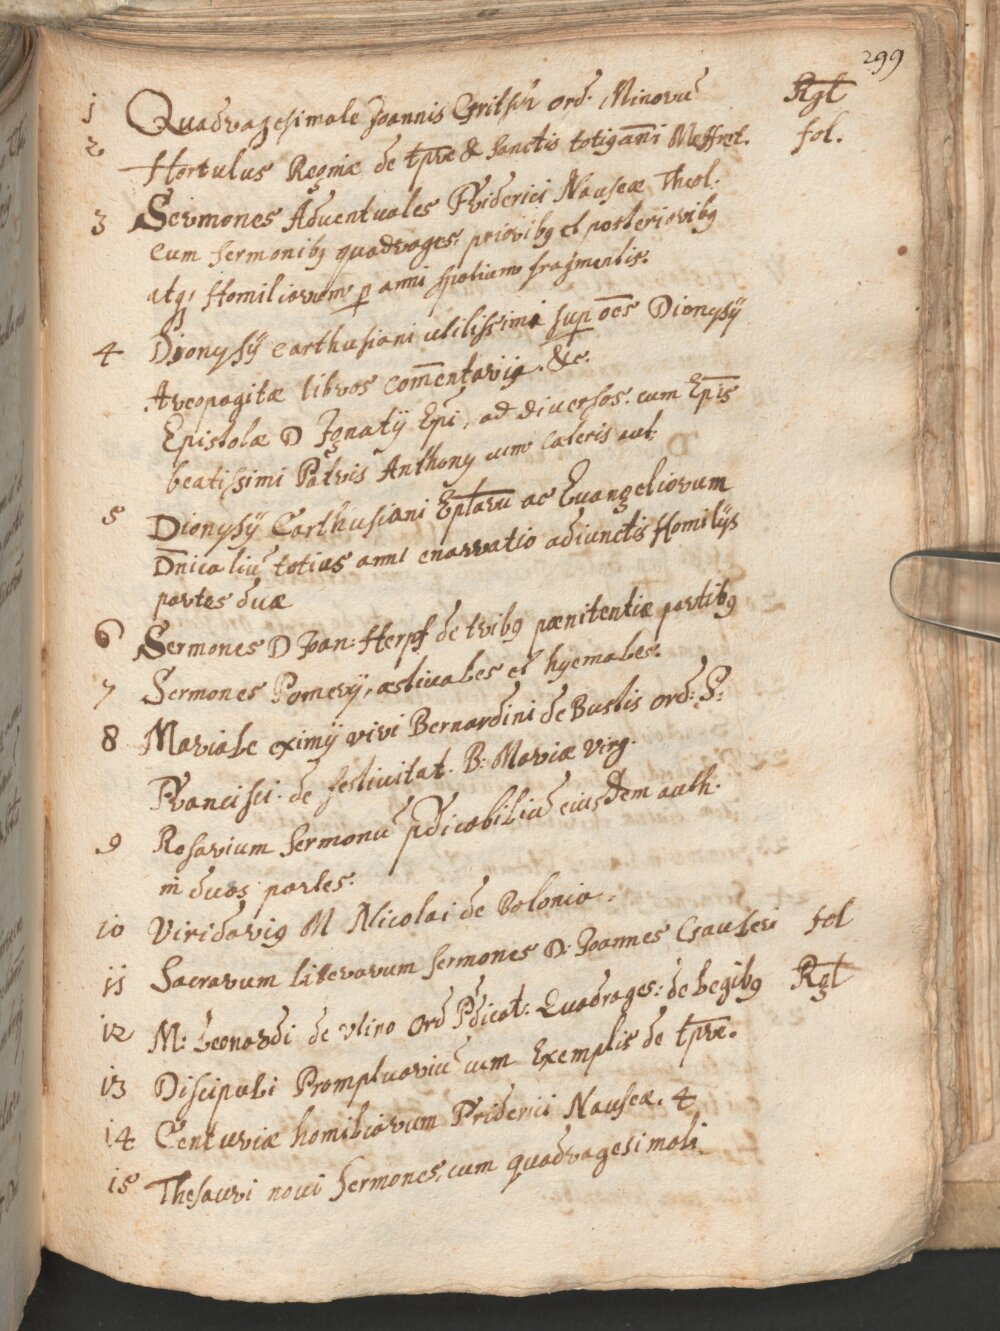 299
1 Quadragesimale Joannis Gritsch ord. Minorū Rgl
2 Hortulus Reginæ de tp̄re & sanctis totig anni Meffret. fol.
3 Sermones Adventuales Friderici Nauseæ Theol.
cum sermonibg quadrages. prioribg et posterioribg
atq, Homiliarum p anni spatium fragmentis.
4 Dionysÿ Carthusiani utilissima sup oēs Dionysÿ
Areopagitæ libros com̄entaria. &c.
Epistolæ D Ignatÿ Epi, ad diversos. cum Epīs
beatissimi Patris Anthonÿ cum cæteris aut.
5 Dionysÿ Carthusiani Eplarū ac Evangeliorum
Dn̄icaliū totius anni enarratio adiunctis Homilÿs
partes duæ
6 Sermones D Joan: Herpf de tribg pœnitentiæ partibg
7 Sermones Pomerÿ, æstivales et hyemales.
8 Mariale eximÿ viri Bernardini de Bustis ord: S:
Francisci. de festivitat. B: Mariæ Virg.
9 Rosarium sermonū pdicabiliū eiusdem auth.
in duas partes.
10 Viridarig M Nicolai de Bolonia.
11 Sacrarum literarum sermones D: Joannes Gauser fol
12 M: Leonardi de Utino Ord Pdicat: Quadrages: de legibg Rgl
13 Discipuli Promptuariū cum Exemplis de tp̄re.
14 Centuriæ homiliarum Friderici Nauseæ. 4
15 Thesauri novi sermones, cum quadragesimali.